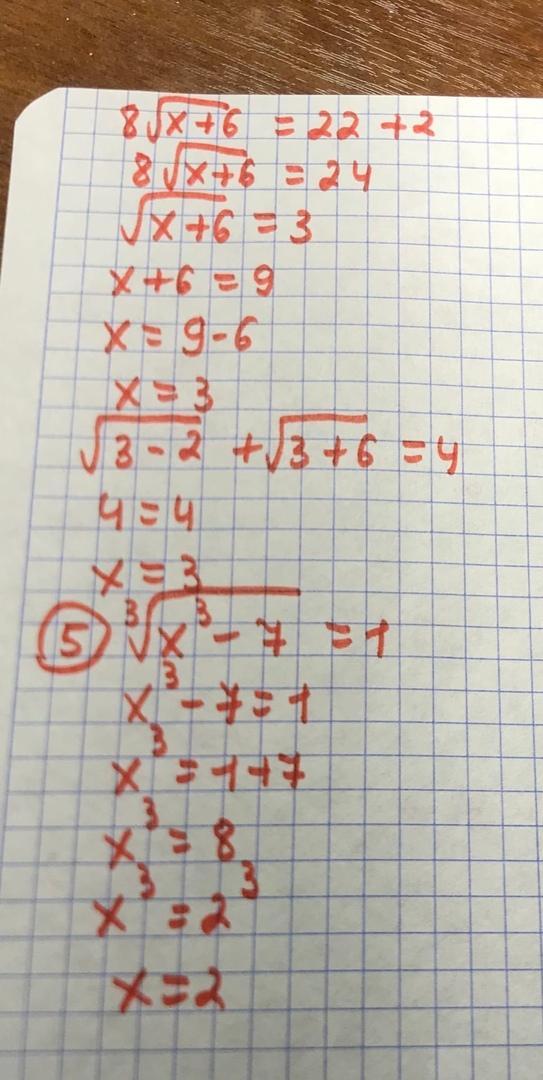 8√x+6 = 22 + 2
8√x+6 = 24
√x+6 = 3
x+6 = 9
x = 9-6
x = 3
√3-2 + √3+6 = 4
4 = 4
x = 3
⑤ ³√x³-7 = 1
x³-7=1
x³ = 1+7
x³ = 8
x³ = 2³
x = 2